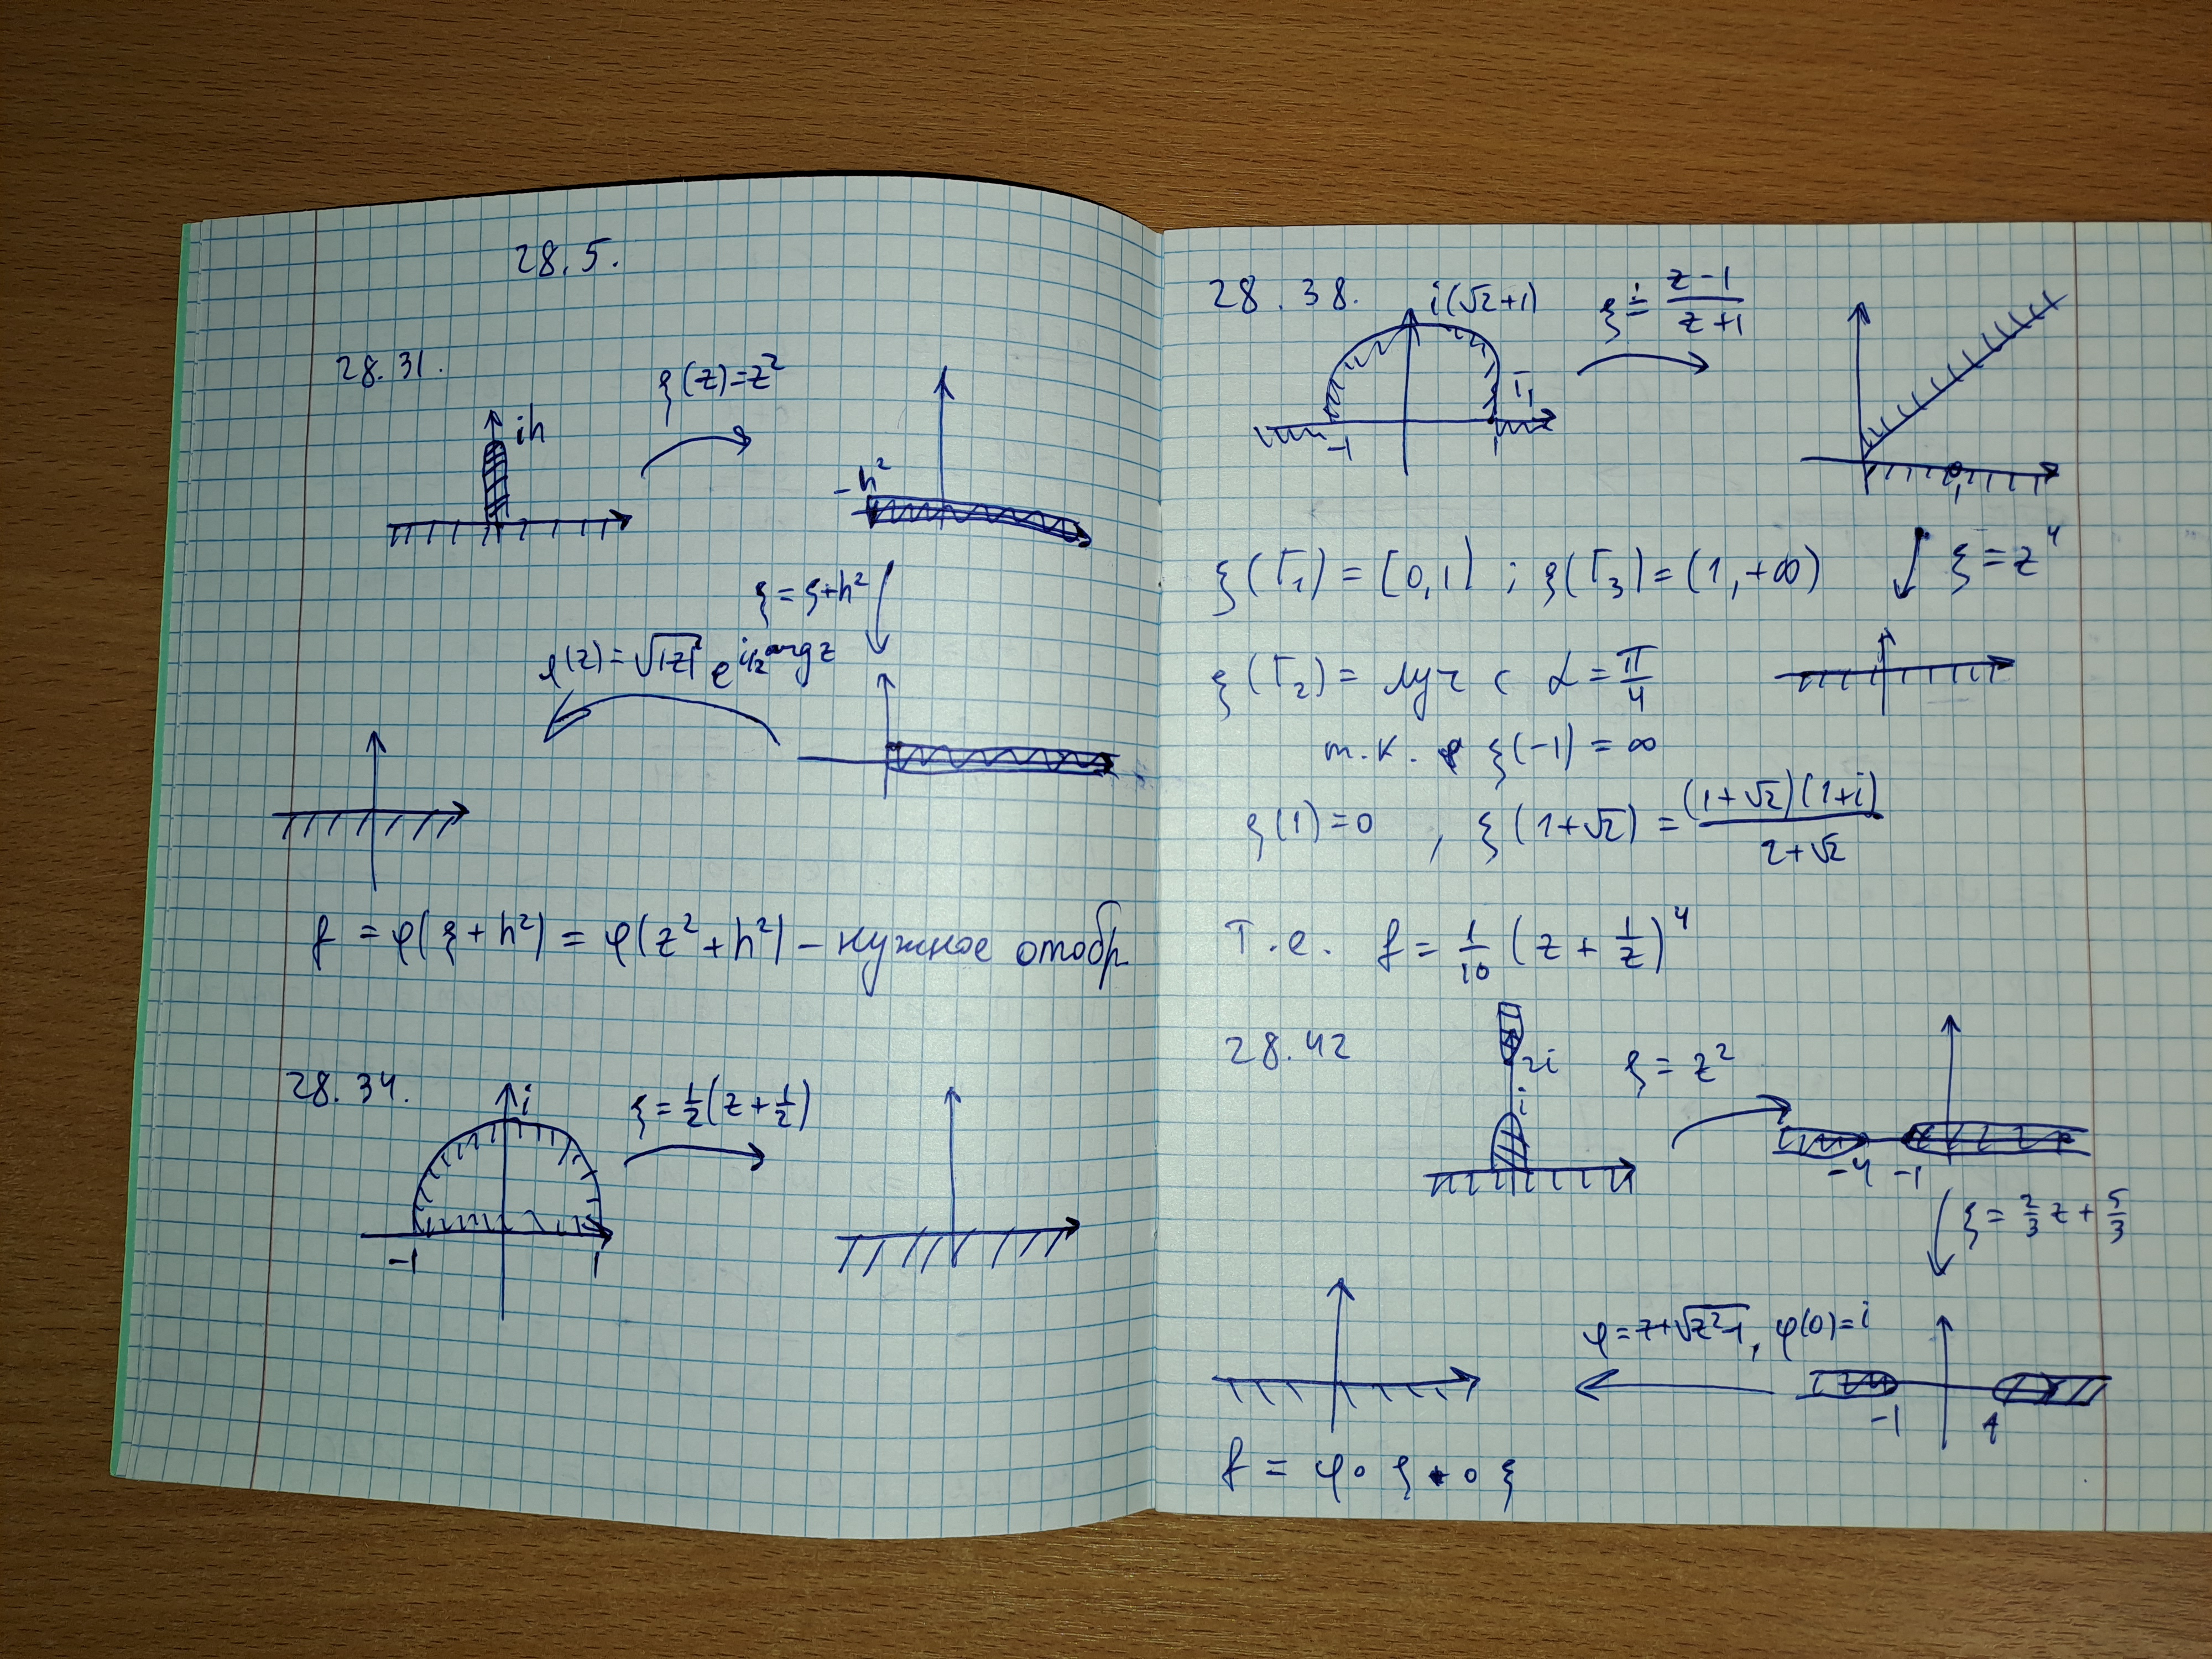 28.5.
28.31.
ih
ξ(z)=z²
-h²
ξ = ξ+h²
φ(z) = √|z| e^{i/2 arg z}
f = φ(ξ+h²) = φ(z²+h²) – нужное отобр
28.34.
i
ξ = 1/2(z + 1/2)
-1 1
28.38.
i(√2+1)
ξ = (z-1)/(z+1)
Γ₁
-1 1
1
ξ(Γ₁) = [0,1) ; ξ(Γ₃) = (1,+∞)
ξ = z⁴
ξ(Γ₂) = луч с α = π/4
т.к. ξ(-1) = ∞
ξ(1)=0 , ξ(1+√2) = (1+√2)(1+i)/(2+√2)
Т.е. f = 1/10 (z + 1/z)⁴
28.42
2i
i
ξ = z²
-4 -1
ξ = 2/3 z + 5/3
φ = z+√(z²-1), φ(0)=i
-1 1
f = φ∘ξ∘ξ